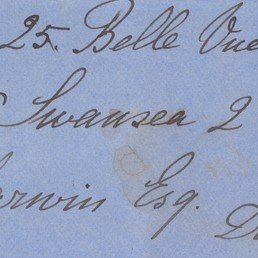 25. Belle Vue
Swansea 2
arwin Esq.
D